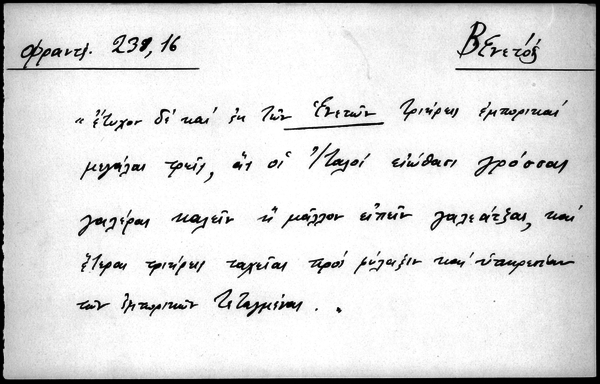 Φραντζ. 238, 16
Βενετός
"ἔτυχον δὲ καὶ ἐκ τῶν Ἐνετῶν τριήρεις ἐμπορικαὶ
μεγάλαι τρεῖς, ἃς οἱ Ἰταλοὶ εἰώθασι γρόσσας
γαλέρας καλεῖν ἢ μᾶλλον εἰπεῖν γαλεάτζας, καὶ
ἕτεραι τριήρεις ταχεῖαι πρὸς φύλαξιν καὶ ὑπηρεσίαν
τῶν ἐμπορικῶν τεταγμέναι. "